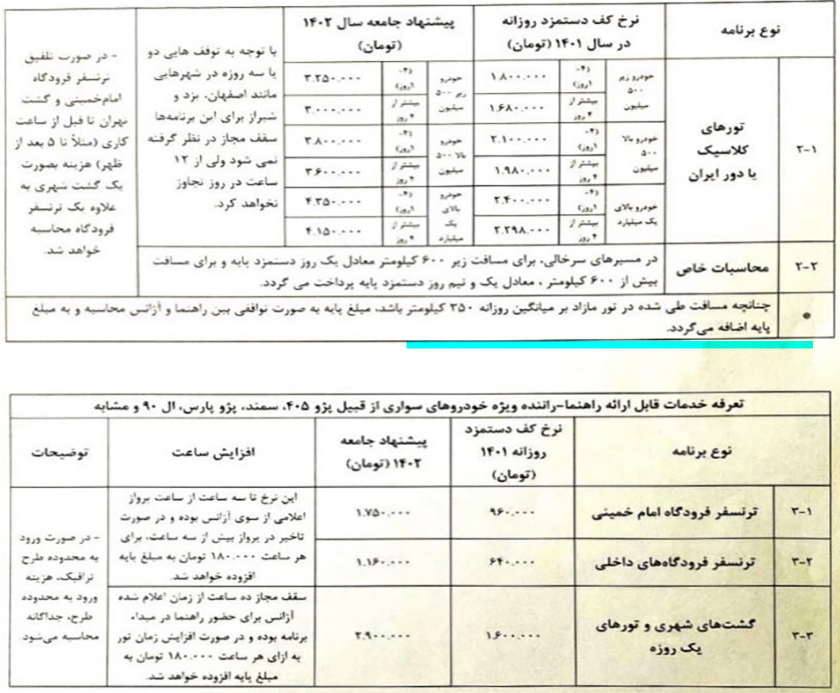 نوع برنامه
نرخ کف دستمزد روزانه
در سال ۱۴۰۱ (تومان)
پیشنهاد جامعه سال ۱۴۰۲
(تومان)
۲-۱
تورهای
کلاسیک
یا دور ایران
خودرو زیر
۵۰۰
میلیون
(۴-
۱روز)
۱.۸۰۰.۰۰۰
بیشتر از
۴ روز
۱.۶۸۰.۰۰۰
خودرو بالا
۵۰۰
میلیون
(۴-
۱روز)
۲.۱۰۰.۰۰۰
بیشتر از
۴ روز
۱.۹۸۰.۰۰۰
خودرو بالای
یک میلیارد
(۴-
۱روز)
۲.۴۰۰.۰۰۰
بیشتر از
۴ روز
۲.۲۹۸.۰۰۰
خودرو
زیر ۵۰۰
میلیون
(۴-
۱روز)
۳.۲۵۰.۰۰۰
بیشتر از
۴ روز
۳.۰۰۰.۰۰۰
خودرو
بالا ۵۰۰
میلیون
(۴-
۱روز)
۳.۸۰۰.۰۰۰
بیشتر از
۴ روز
۳.۶۰۰.۰۰۰
خودرو
بالای
یک
میلیارد
(۴-
۱روز)
۴.۳۵۰.۰۰۰
بیشتر از
۴ روز
۴.۱۵۰.۰۰۰
با توجه به توقف هایی دو
یا سه روزه در شهرهایی
مانند اصفهان، یزد و
شیراز برای این برنامه‌ها
سقف مجاز در نظر گرفته
نمی شود ولی از ۱۲
ساعت در روز تجاوز
نخواهد کرد.
- در صورت تلفیق
ترنسفر فرودگاه
امام‌خمینی و گشت
تهران تا قبل از ساعت
کاری (مثلاً تا ۵ بعد از
ظهر) هزینه بصورت
یک گشت شهری به
علاوه یک ترنسفر
فرودگاه محاسبه
خواهد شد.
۲-۲
محاسبات خاص
در مسیرهای سرخالی، برای مسافت زیر ۶۰۰ کیلومتر معادل یک روز دستمزد پایه و برای مسافت
بیش از ۶۰۰ کیلومتر ، معادل یک و نیم روز دستمزد پایه پرداخت می گردد.
• چنانچه مسافت طی شده در تور مازاد بر میانگین روزانه ۳۵۰ کیلومتر باشد، مبلغ پایه به صورت توافقی بین راهنما و آژانس محاسبه و به مبلغ
پایه اضافه می‌گردد.
تعرفه خدمات قابل ارائه راهنما-راننده ویژه خودروهای سواری از قبیل پژو ۴۰۵، سمند، پژو پارس، ال ۹۰ و مشابه
نوع برنامه
نرخ کف دستمزد
روزانه ۱۴۰۱
(تومان)
پیشنهاد جامعه
۱۴۰۲ (تومان)
افزایش ساعت
توضیحات
۳-۱
ترنسفر فرودگاه امام خمینی
۹۶۰.۰۰۰
۱.۷۵۰.۰۰۰
این نرخ تا سه ساعت از ساعت پرواز
اعلامی از سوی آژانس بوده و در صورت
تاخیر در پرواز بیش از سه ساعت، برای
هر ساعت ۱۸۰.۰۰۰ تومان به مبلغ پایه
افزوده خواهد شد.
۳-۲
ترنسفر فرودگاه‌های داخلی
۶۴۰.۰۰۰
۱.۱۶۰.۰۰۰
۳-۳
گشت‌های شهری و تورهای
یک روزه
۱.۶۰۰.۰۰۰
۲.۹۰۰.۰۰۰
سقف مجاز ده ساعت از زمان اعلام شده
آژانس برای حضور راهنما در مبداء
برنامه بوده و در صورت افزایش زمان تور
به ازای هر ساعت ۱۸۰.۰۰۰ تومان به
مبلغ پایه افزوده خواهد شد.
- در صورت ورود
به محدوده طرح
ترافیک، هزینه
ورود به محدوده
طرح، جداگانه
محاسبه می‌شود